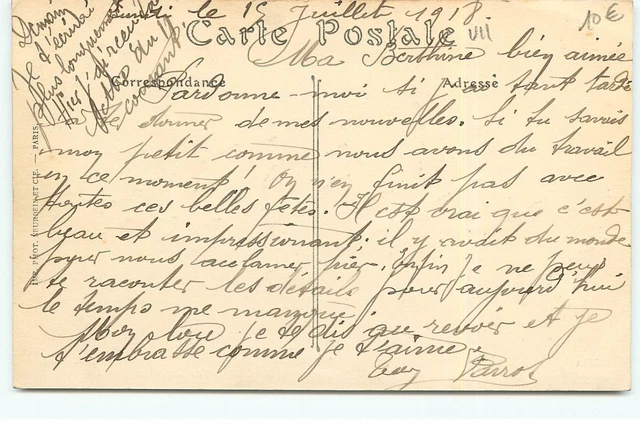 le 15 Juillet 1918
VII
10€
Carte Postale
Ma Berthine bien aimée
Correspondance
Adresse
Pardonne-moi si j'ai tant tardé
à te donner de mes nouvelles. Si tu savais
mon petit comme nous avons du travail
en ce moment! On n'en finit pas avec
toutes ces belles fêtes. Il est vrai que c'est
beau et impressionnant; il y avait du monde
pour nous acclamer hier. Enfin je ne peux
te raconter les détails pour aujourd'hui
le temps me manque.
Mon Lou je te dis au revoir et je
t'embrasse comme je t'aime.
Demain
Je t'écrirai
plus longuement
Hier j'ai reçu
lettre du
courant
IMP. PHOT. NEURDEIN ET CIE. — PARIS